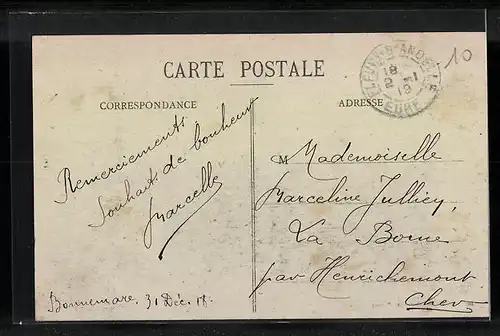 CARTE POSTALE
CORRESPONDANCE
ADRESSE
FLEURY-S-ANDELLE
18
2 -1
19
EURE
10
Remerciements
Souhaits de bonheur
Marcelle
Mademoiselle
Marceline Jullien,
La Borne
par Henrichemont
Cher
Bonnemare. 31 Déc. 18.